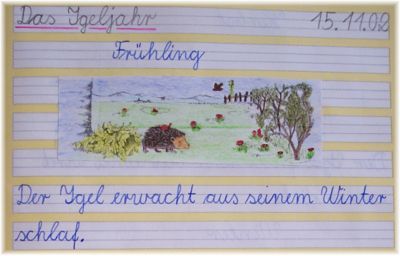 Das Igeljahr 15.11.02
Frühling
Der Igel erwacht aus seinem Winter
schlaf.